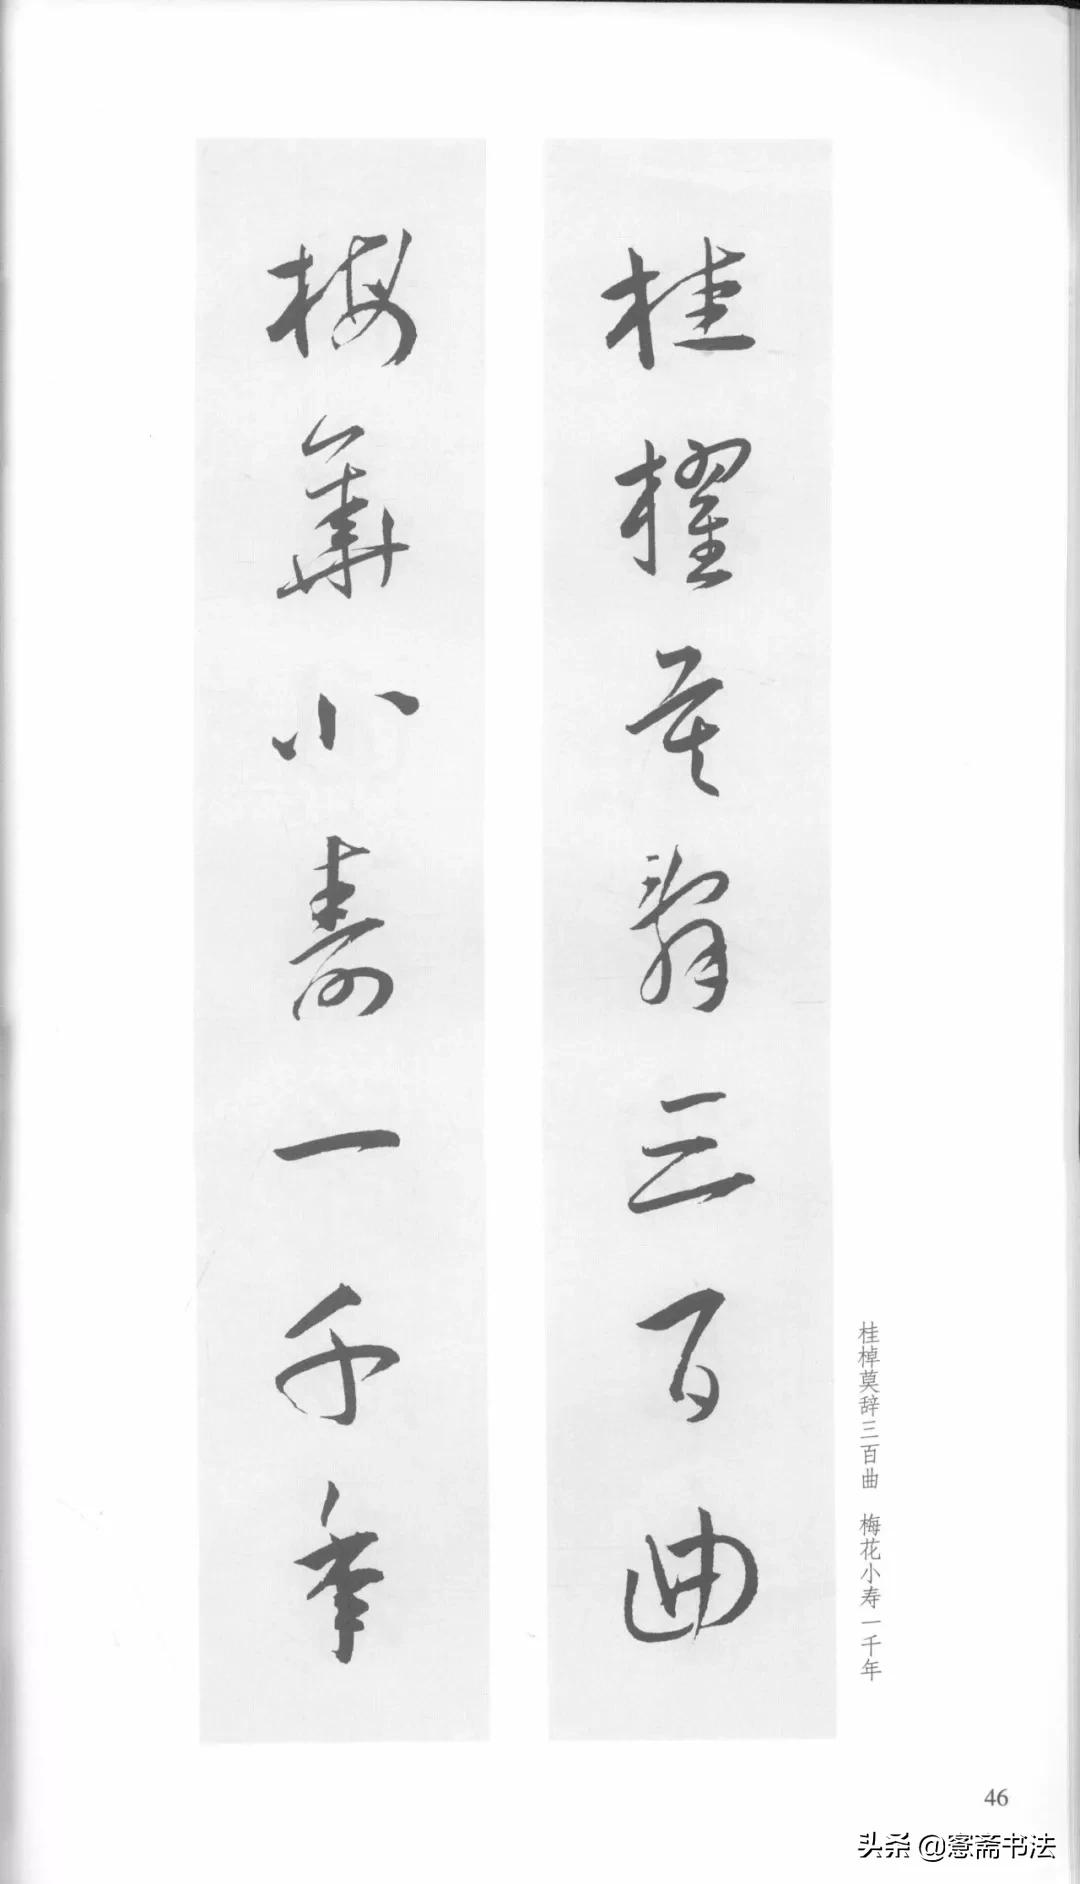 桂櫂莫辞三百曲
梅華小壽一千年
桂棹莫辞三百曲 梅花小寿一千年
46
头条 @愙斋书法